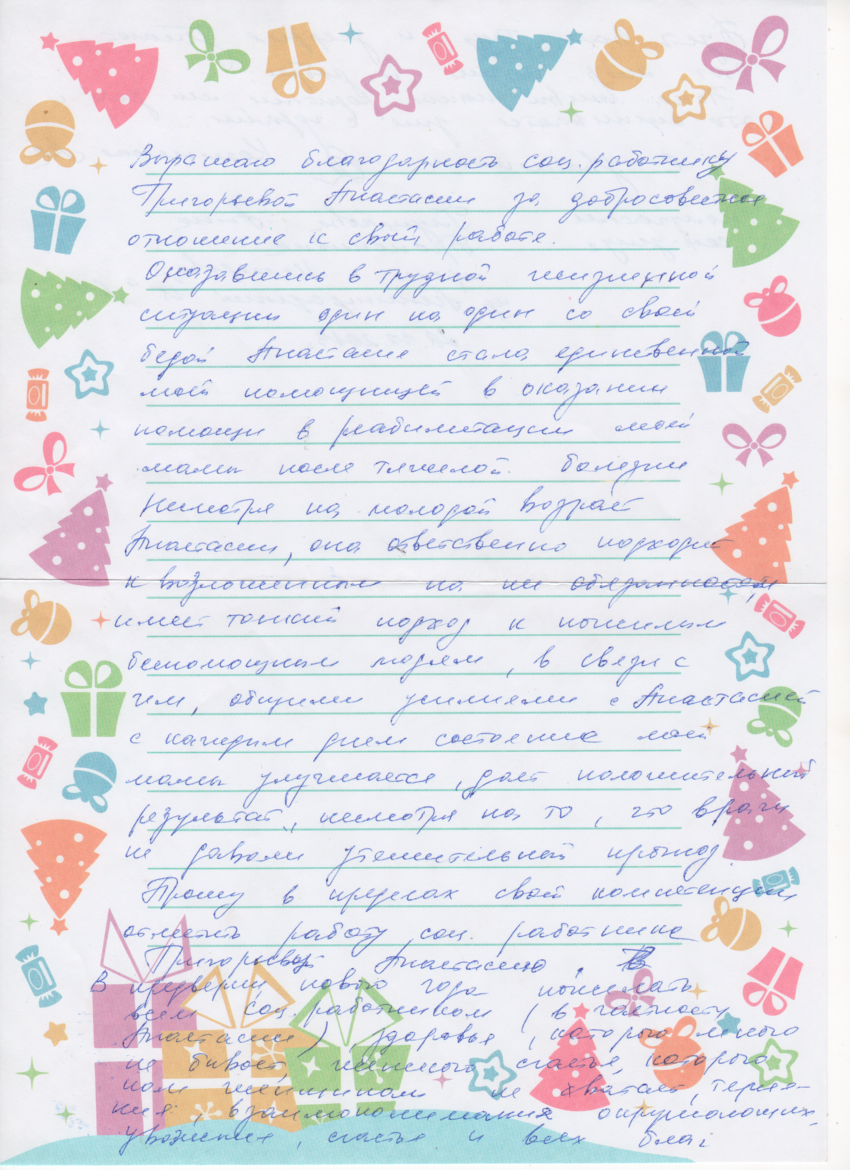 Выражаю благодарность соц. работнику
Григорьевой Анастасии за добросовестное
отношение к своей работе.
Оказавшись в трудной жизненной
ситуации один на один со своей
бедой Анастасие стала единственной
моей помощницей в оказании
помощи в реабилитации моей
мамы после тяжелой болезни
Несмотря на молодой возраст
Анастасии, она ответственно подходит
к возложенным на ней обязанностям,
имеет тонкий подход к пожилым
беспомощным людям, в связи с
чем, общими усилиями с Анастасией
с каждым днем состояние моей
мамы улучшается, дает положительный
результат, несмотря на то, что врачи
не давали утешительной прогноз.
Прошу в пределах своей компетенции
отметить работу соц. работника
Григорьевой Анастасию.
В преддверии нового года пожелать
всем соц. работником (в частности
Анастасии), здоровья, которого много
не бывает, женского счастье, которого
нам женщинам не хватает, терпе-
ния, взаимопонимания окружающих,
уважения, счастья и всех благ